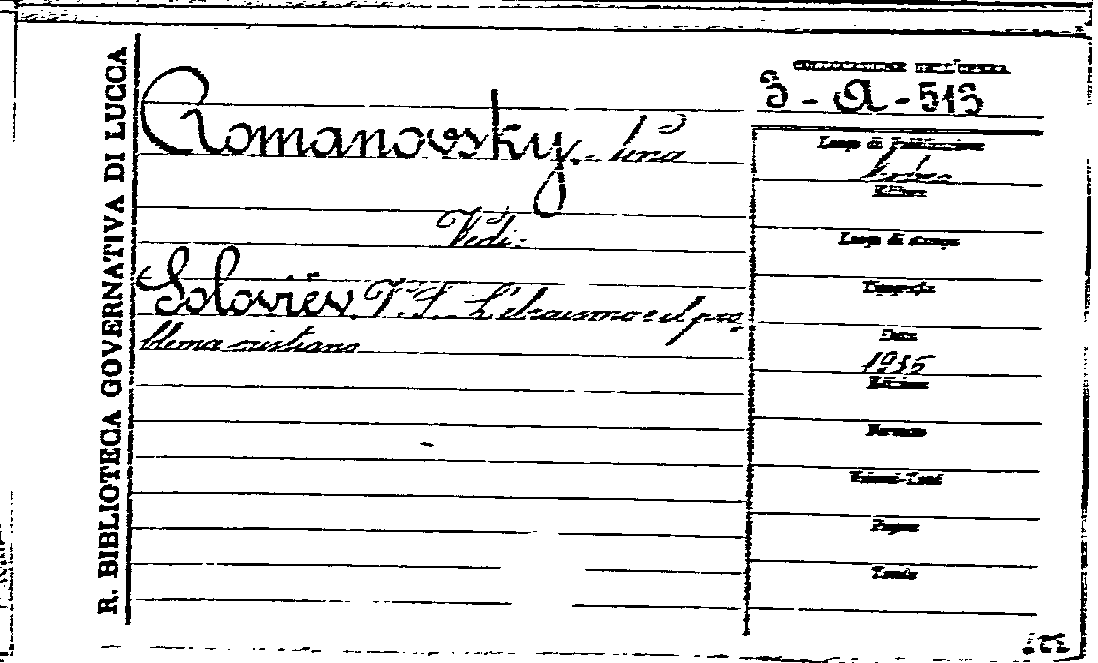 R. BIBLIOTECA GOVERNATIVA DI LUCCA
3 - A - 513
Romanovsky.
Vedi:
Soloviëv V. S. L'ebraismo e il pro-
blema cristiano
Luogo di Pubblicazione
Editore
Luogo di stampa
Tipografia
Data
1935
Edizione
Formato
Volumi-Tomi
Pagine
Tavole